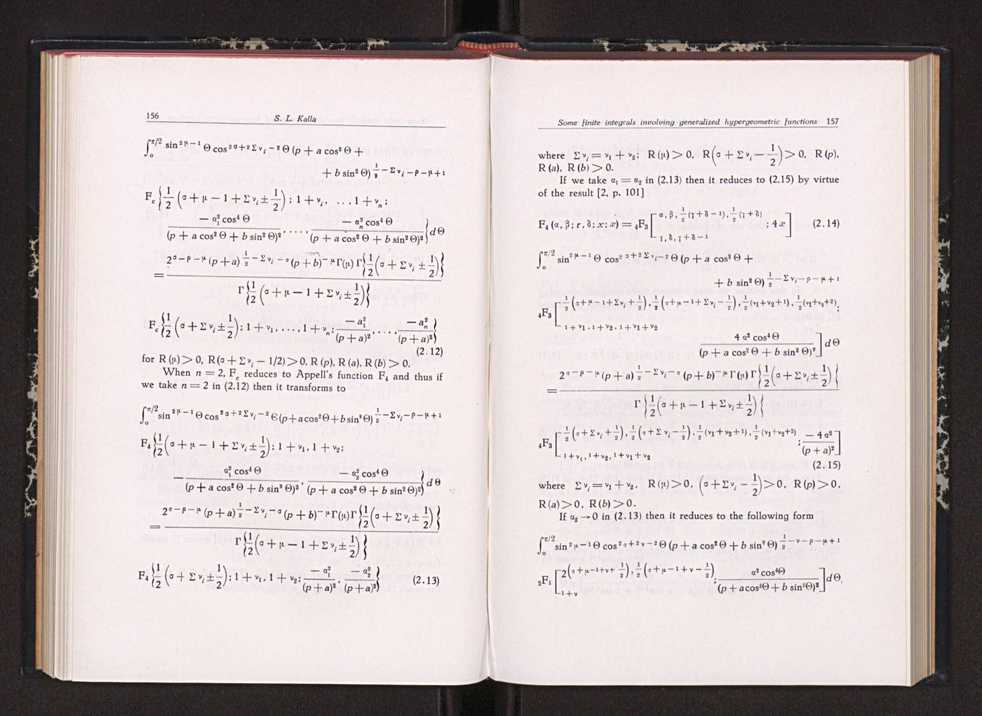 156 S. L. Kalla
∫₀^{π/2} sin^{2μ−1} Θ cos^{2σ+2Σν_i−2} Θ (p + a cos² Θ +
+ b sin² Θ)^{1/2 − Σν_i − ρ − μ + 1}
F_c {1/2 (σ + μ − 1 + Σν_i ± 1/2) ; 1 + ν₁, . . . 1 + ν_n ;
− α₁² cos⁴ Θ / (p + a cos² Θ + b sin² Θ)² , . . . . , − α_n² cos⁴ Θ / (p + a cos² Θ + b sin² Θ)²} dΘ
= 2^{σ−ρ−μ} (p + a)^{1/2 − Σν_i − σ} (p + b)^{−μ} Γ(μ) Γ{1/2 (σ + Σν_i ± 1/2)} / Γ{1/2 (σ + μ − 1 + Σν_i ± 1/2)}
F_c {1/2 (σ + Σν_i ± 1/2); 1 + ν₁, . . . , 1 + ν_n; − α₁² / (p + a)² , . . . , − α_n² / (p + a)²}
(2.12)
for R (μ) > 0, R (σ + Σν_i − 1/2) > 0, R (p), R (a), R (b) > 0.
When n = 2, F_c reduces to Appell's function F₄ and thus if
we take n = 2 in (2.12) then it transforms to
∫₀^{π/2} sin^{2μ−1} Θ cos^{2σ+2Σν_i−2} Θ (p + a cos² Θ + b sin² Θ)^{1/2 − Σν_i − ρ − μ + 1}
F₄ {1/2 (σ + μ − 1 + Σν_i ± 1/2); 1 + ν₁, 1 + ν₂;
− α₁² cos⁴ Θ / (p + a cos² Θ + b sin² Θ)² , − α₂² cos⁴ Θ / (p + a cos² Θ + b sin² Θ)²} d Θ
= 2^{σ−ρ−μ} (p + a)^{1/2 − Σν_i − σ} (p + b)^{−μ} Γ(μ) Γ{1/2 (σ + Σν_i ± 1/2)} / Γ{1/2 (σ + μ − 1 + Σν_i ± 1/2)}
F₄ {1/2 (σ + Σν_i ± 1/2); 1 + ν₁, 1 + ν₂; − α₁² / (p + a)² , − α₂² / (p + a)²} (2.13)
Some finite integrals involving generalized hypergeometric functions 157
where Σν_i = ν₁ + ν₂; R (μ) > 0, R(σ + Σν_i − 1/2) > 0, R (p),
R (a), R (b) > 0.
If we take α₁ = α₂ in (2.13) then it reduces to (2.15) by virtue
of the result [2, p. 101]
F₄ (α, β; r, δ; x; x) = ₄F₃ [α, β, 1/2 (γ + δ − 1), 1/2 (γ + δ) / γ, δ, γ + δ − 1 ; 4 x] (2.14)
∫₀^{π/2} sin^{2μ−1} Θ cos^{2σ+2Σν_i−2} Θ (p + a cos² Θ +
+ b sin² Θ)^{1/2 − Σν_i − ρ − μ + 1}
₄F₃ [1/2 (σ + μ − 1 + Σν_i + 1/2), 1/2 (σ + μ − 1 + Σν_i − 1/2), 1/2 (ν₁ + ν₂ + 1), 1/2 (ν₁ + ν₂ + 2) / 1 + ν₁, 1 + ν₂, 1 + ν₁ + ν₂ ;
4 α² cos⁴ Θ / (p + a cos² Θ + b sin² Θ)²] d Θ
= 2^{σ−ρ−μ} (p + a)^{1/2 − Σν_i − σ} (p + b)^{−μ} Γ (μ) Γ {1/2 (σ + Σν_i ± 1/2)} / Γ {1/2 (σ + μ − 1 + Σν_i ± 1/2)}
₄F₃ [1/2 (σ + Σν_i + 1/2), 1/2 (σ + Σν_i − 1/2), 1/2 (ν₁ + ν₂ + 1), 1/2 (ν₁ + ν₂ + 2) / 1 + ν₁, 1 + ν₂, 1 + ν₁ + ν₂ ; − 4 α² / (p + a)²]
(2.15)
where Σν_i = ν₁ + ν₂, R (μ) > 0, (σ + Σν_i − 1/2) > 0, R (p) > 0,
R (a) > 0, R (b) > 0.
If α₂ → 0 in (2.13) then it reduces to the following form
∫₀^{π/2} sin^{2μ−1} Θ cos^{2σ+2ν−2} Θ (p + a cos² Θ + b sin² Θ)^{1/2 − ν − ρ − μ + 1}
₂F₁ [2(σ + μ − 1 + ν + 1/2), 1/2 (σ + μ − 1 + ν − 1/2) / 1 + ν ; α² cos⁴ Θ / (p + a cos² Θ + b sin² Θ)²] d Θ.